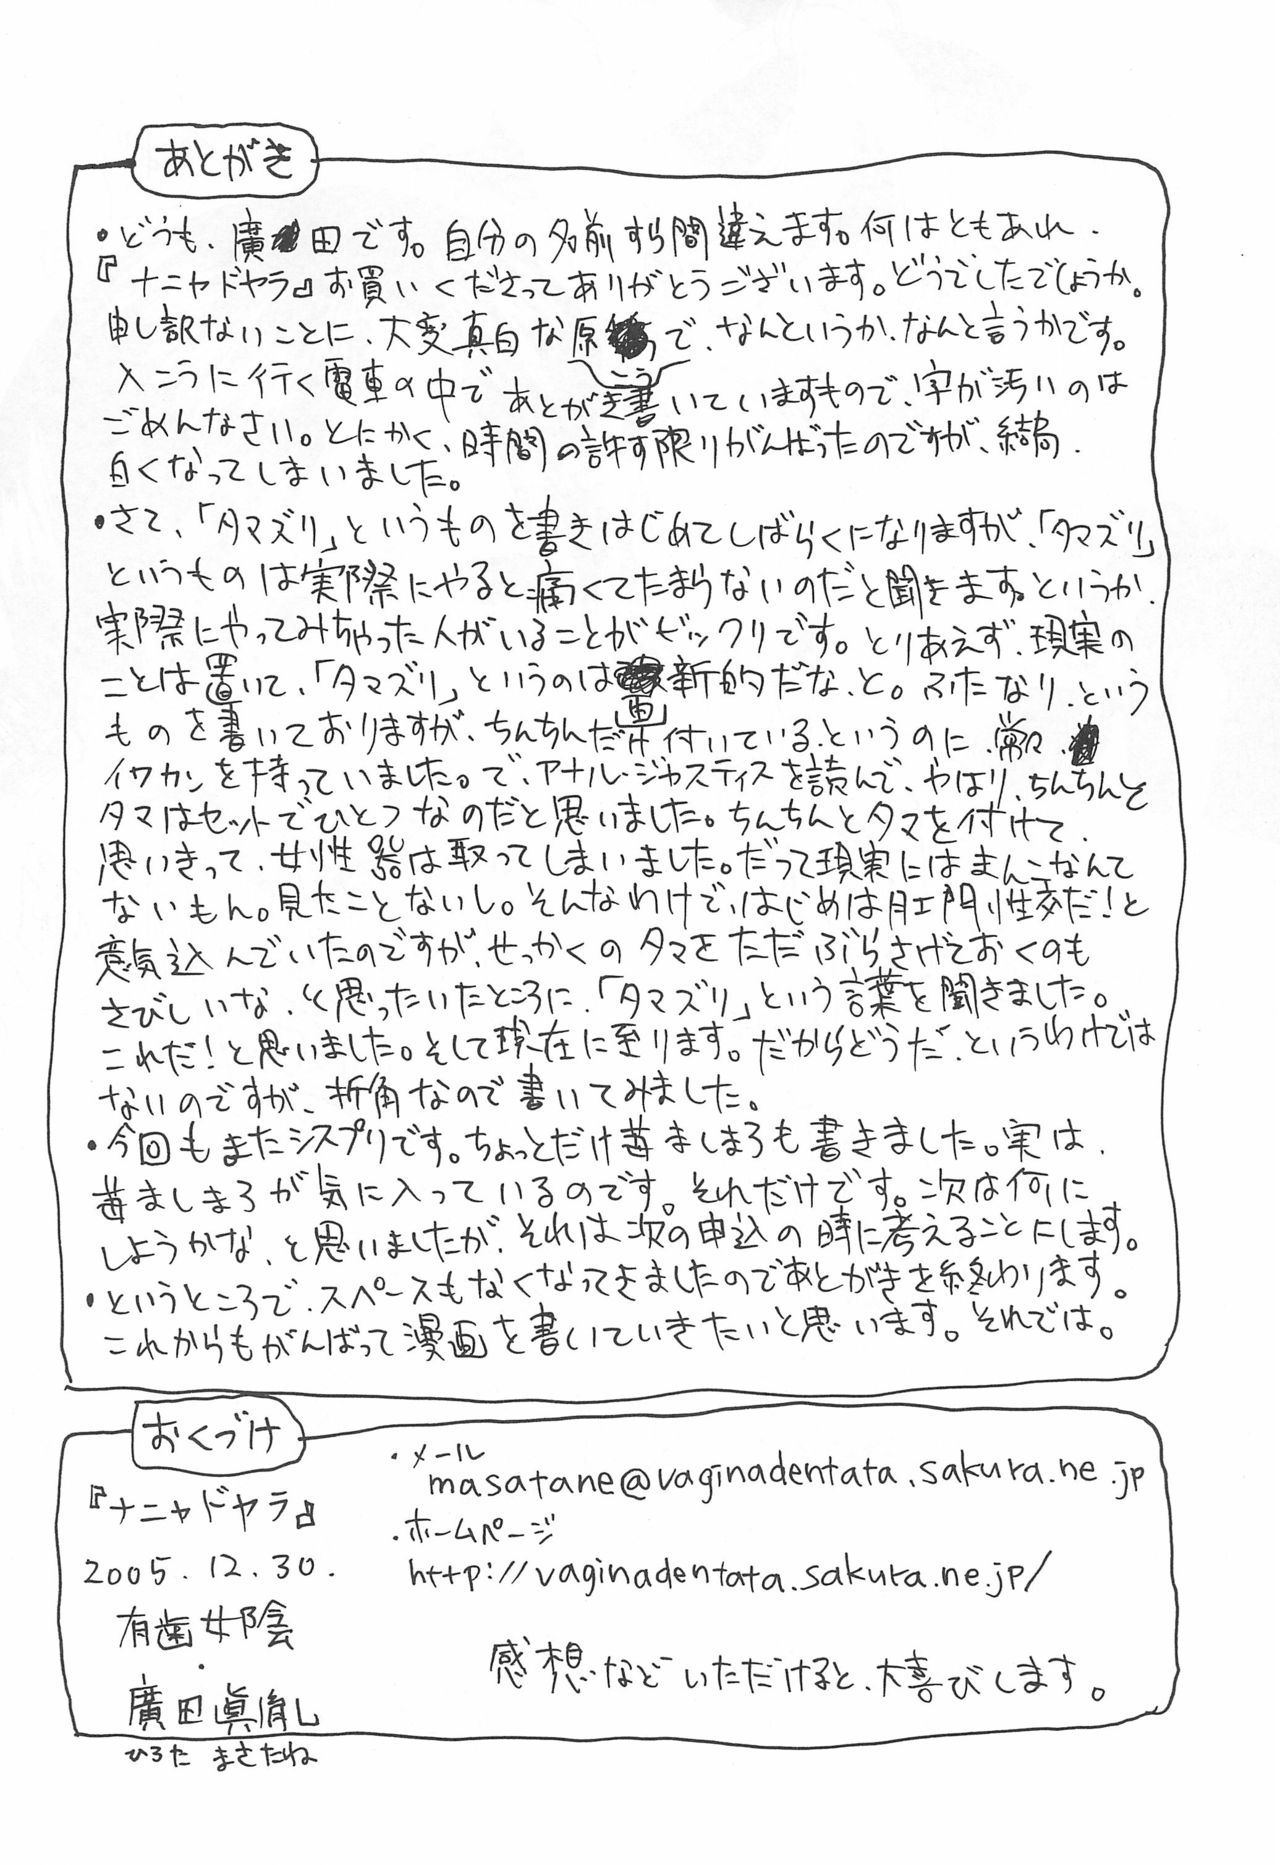 あとがき
・どうも、廣田です。自分の名前すら間違えます。何はともあれ、
『ナニャドヤラ』お買いくださってありがとうございます。どうでしたでしょうか。
申し訳ないことに、大変真白な原で、なんというか、なんと言うかです。
入こうに行く電車の中であとがき書いていますもので、字が汚いのは
こう
ごめんなさい。とにかく、時間の許す限りがんばったのですが、結局、
白くなってしまいました。
・さて、「タマズリ」というものを書きはじめてしばらくになりますが、「タマズリ」
というものは実際にやると痛くてたまらないのだと聞きます。というか、
実際にやってみちゃった人がいることがビックリです。とりあえず、現実の
ことは置いて、「タマズリ」というのは画新的だな、と。ふたなり、という
ものを書いておりますが、ちんちんだけ付いている、というのに、常々、
イワカンを持っていました。で、アナル・ジャスティスを読んで、やはり、ちんちんと
タマはセットでひとつなのだと思いました。ちんちんとタマを付けて、
思いきって、女性器は取ってしまいました。だって現実にはまんこなんて
ないもん。見たことないし。そんなわけで、はじめは肛門性交だ!と
意気込んでいたのですが、せっかくのタマをただぶらさげておくのも
さびしいな、と思ったいたところに、「タマズリ」という言葉を聞きました。
これだ!と思いました。そして現在に至ります。だからどうだ、というわけでは
ないのですが、折角なので書いてみました。
・今回もまたシスプリです。ちょっとだけ苺ましまろも書きました。実は、
苺ましまろが気に入っているのです。それだけです。次は何に
しようかな、と思いましたが、それは次の申込の時に考えることにします。
・というところで、スペースもなくなってきましたのであとがきを終わります。
これからもがんばって漫画を書いていきたいと思います。それでは。
おくづけ
『ナニャドヤラ』
2005.12.30.
有歯女陰
・
廣田眞胤
ひろた まさたね
・メール
masatane@vaginadentata.sakura.ne.jp
・ホームページ
http://vaginadentata.sakura.ne.jp/
感想などいただけると、大喜びします。